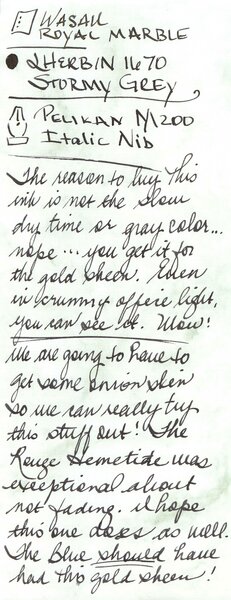 WASAU
ROYAL MARBLE
J HERBIN 1670
STORMY GREY
PELIKAN M200
Italic Nib
The reason to buy this
ink is not the slow
dry time or gray color...
nope... you get it for
the gold sheen. Even
in crummy office light,
you can see it. Wow!
We are going to have to
get some onion skin
so we can really try
this stuff out! The
Rouge Hematide was
exceptional about
not fading. I hope
this one does as well.
The Blue should have
had this gold sheen!